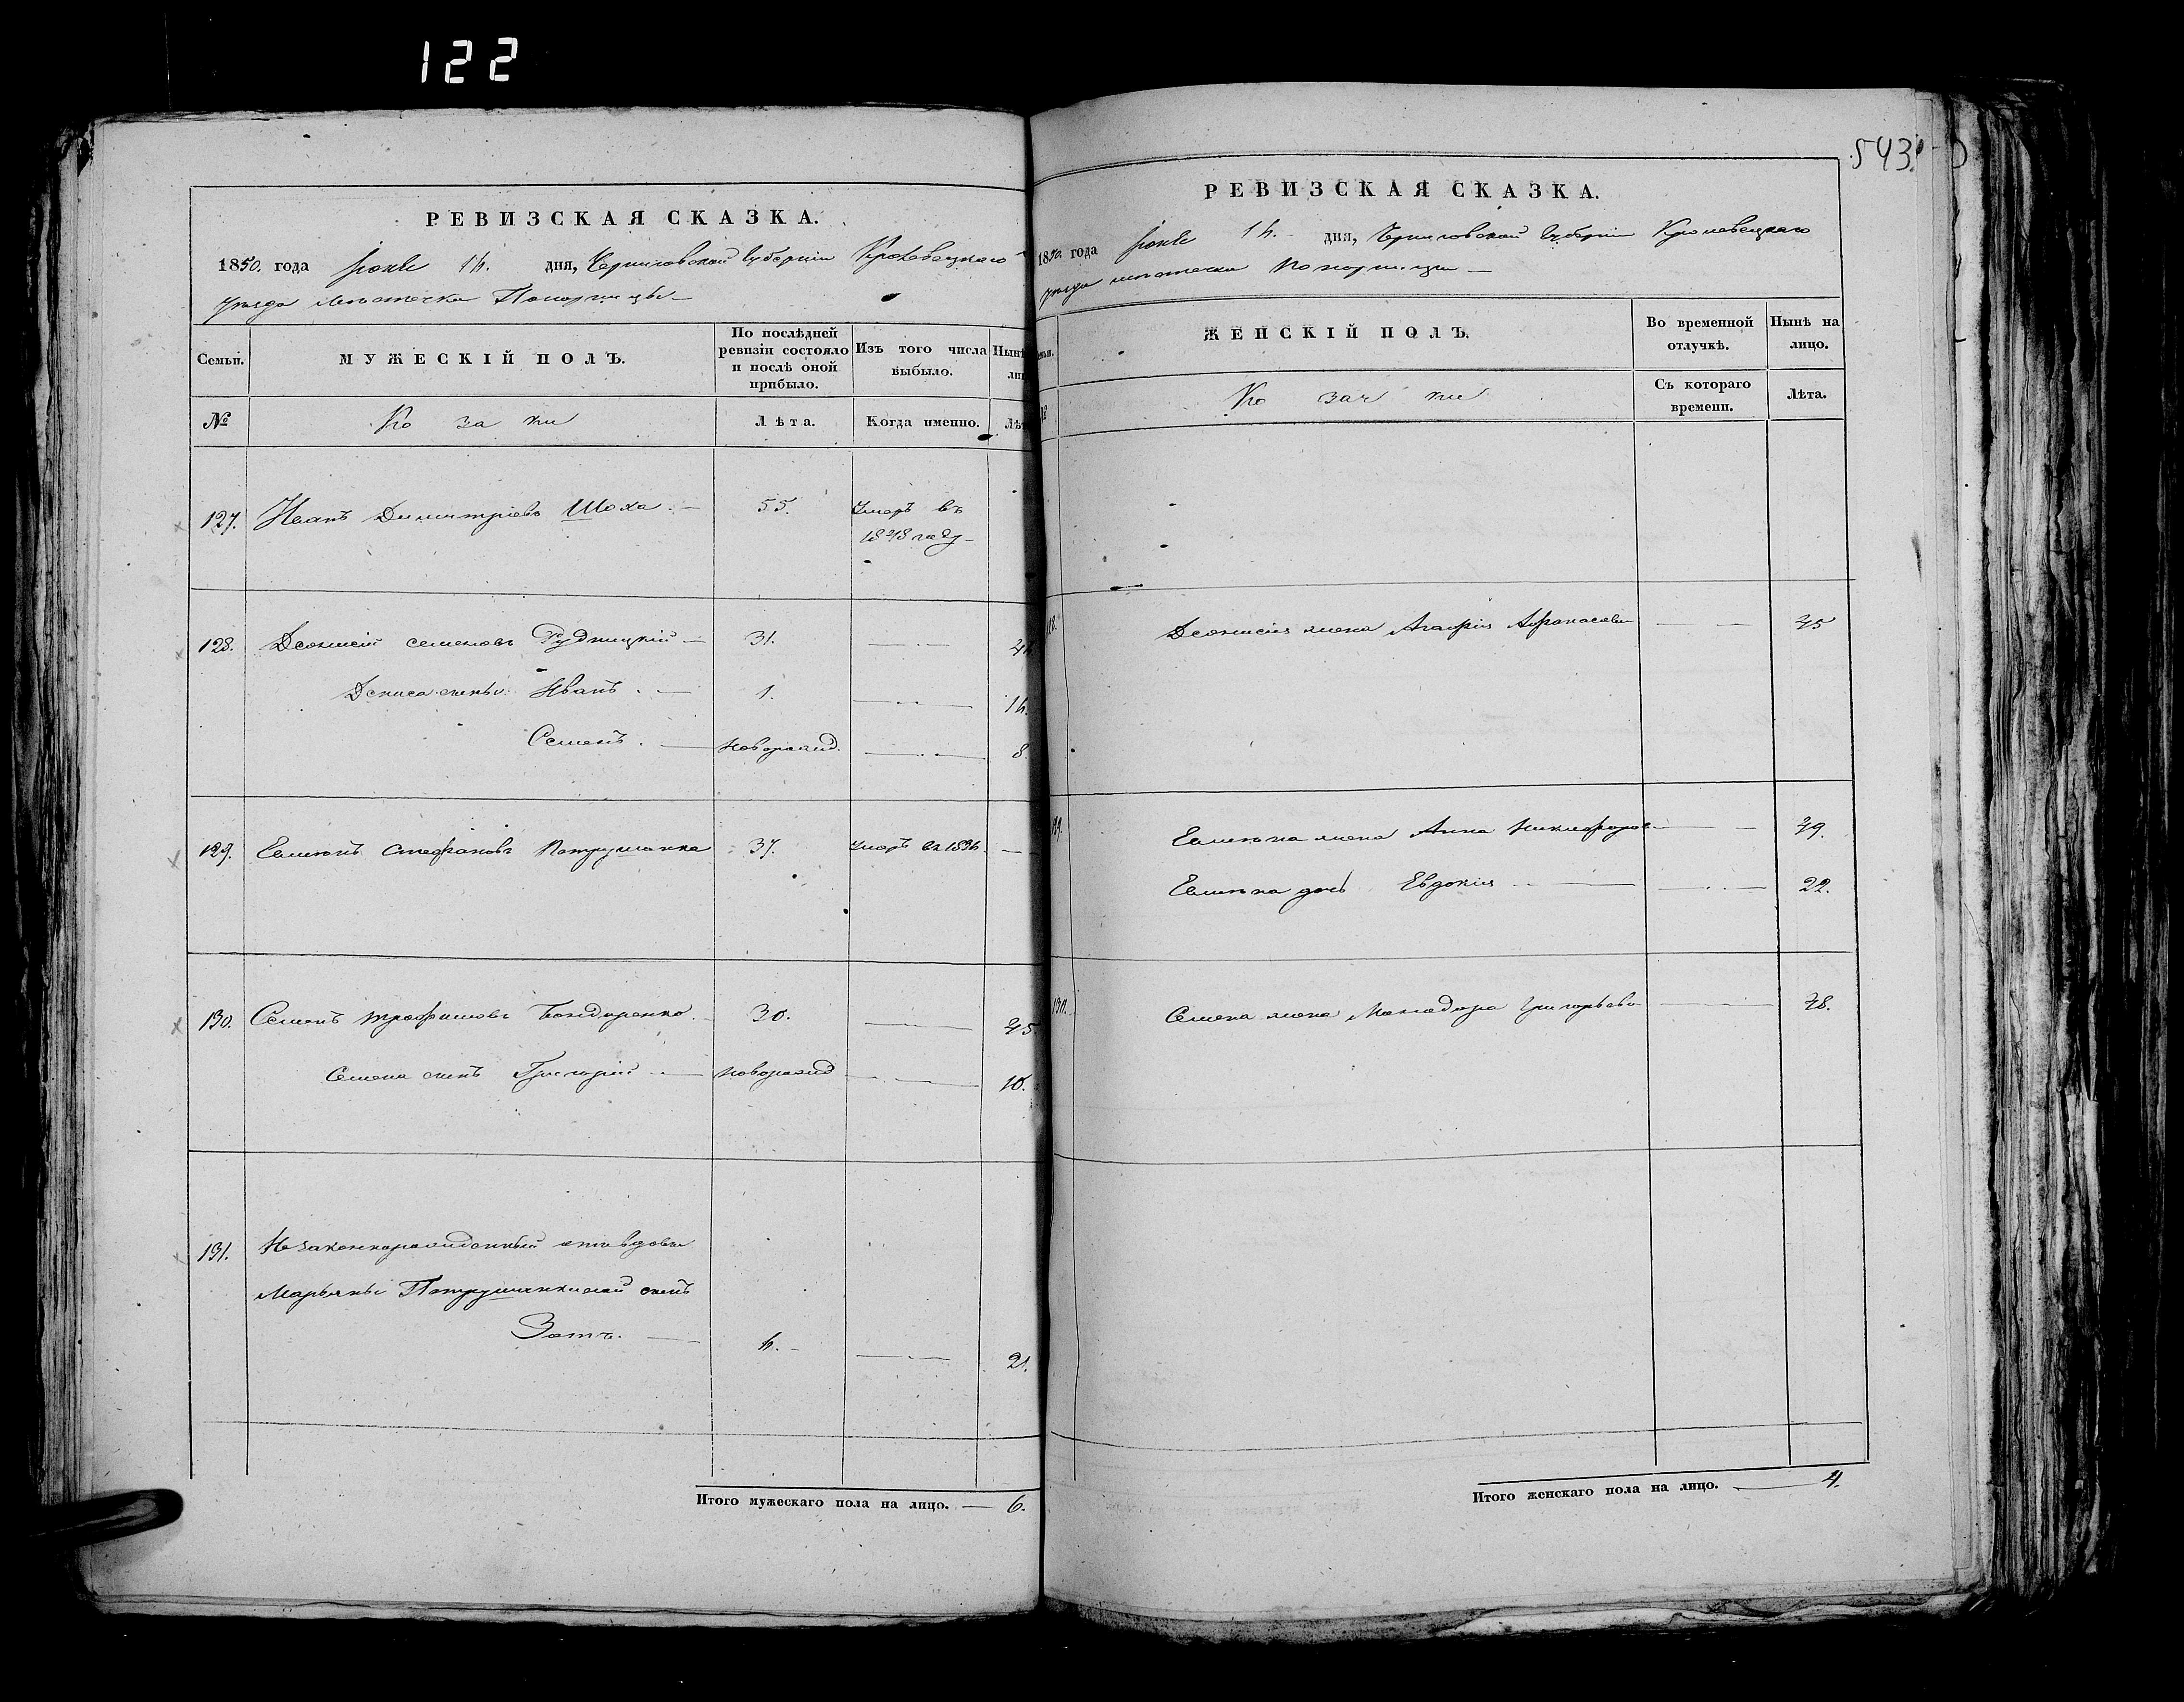 122
543.
РЕВИЗСКАЯ СКАЗКА.
1850. года Іюня 16. дня, Черниговской Губерніи Кролевецкаго
уезда местечка Понорницы
Семьи.
МУЖЕСКІЙ ПОЛЪ.
По послѣдней ревизіи состояло и послѣ оной прибыло.
Изъ того числа выбыло.
Нынѣ
№
Ко за ки
Лѣта.
Когда именно.
Лѣт
127. Иванъ Димитріевъ Шоха. 55. Умеръ въ
1848 году
128. Деонисій Семеновъ Рудницкій 31.
Дениса сыны: Иванъ. 1. 16.
Семенъ. новорожд. 8.
129. Евменъ Стефановъ Потрушанка 37. Умеръ въ 1836.
130. Семенъ Трофимовъ Бондаренко 30. 45.
Семена сынъ Григорій новорожд 10.
131. Незаконнорожденный отъ вдовы
Марьяны сынъ
6. 21.
Итого мужескаго пола на лицо. 6.
РЕВИЗСКАЯ СКАЗКА.
1850 года Іюня 16. дня, Черниговской Губерніи Кролевецкаго
уезда местечка Понорницы
ЖЕНСКІЙ ПОЛЪ.
Во временной отлучкѣ.
Нынѣ на лицо.
Ко зач ки
Съ котораго времени.
Лѣта.
Деонисія жена Агафія Афонасова 45
Евмена жена Анна Никифоров 49.
Евмена дочь Евдокія 22.
130. Семена жена Григорьева 48.
Итого женскаго пола на лицо. 4.